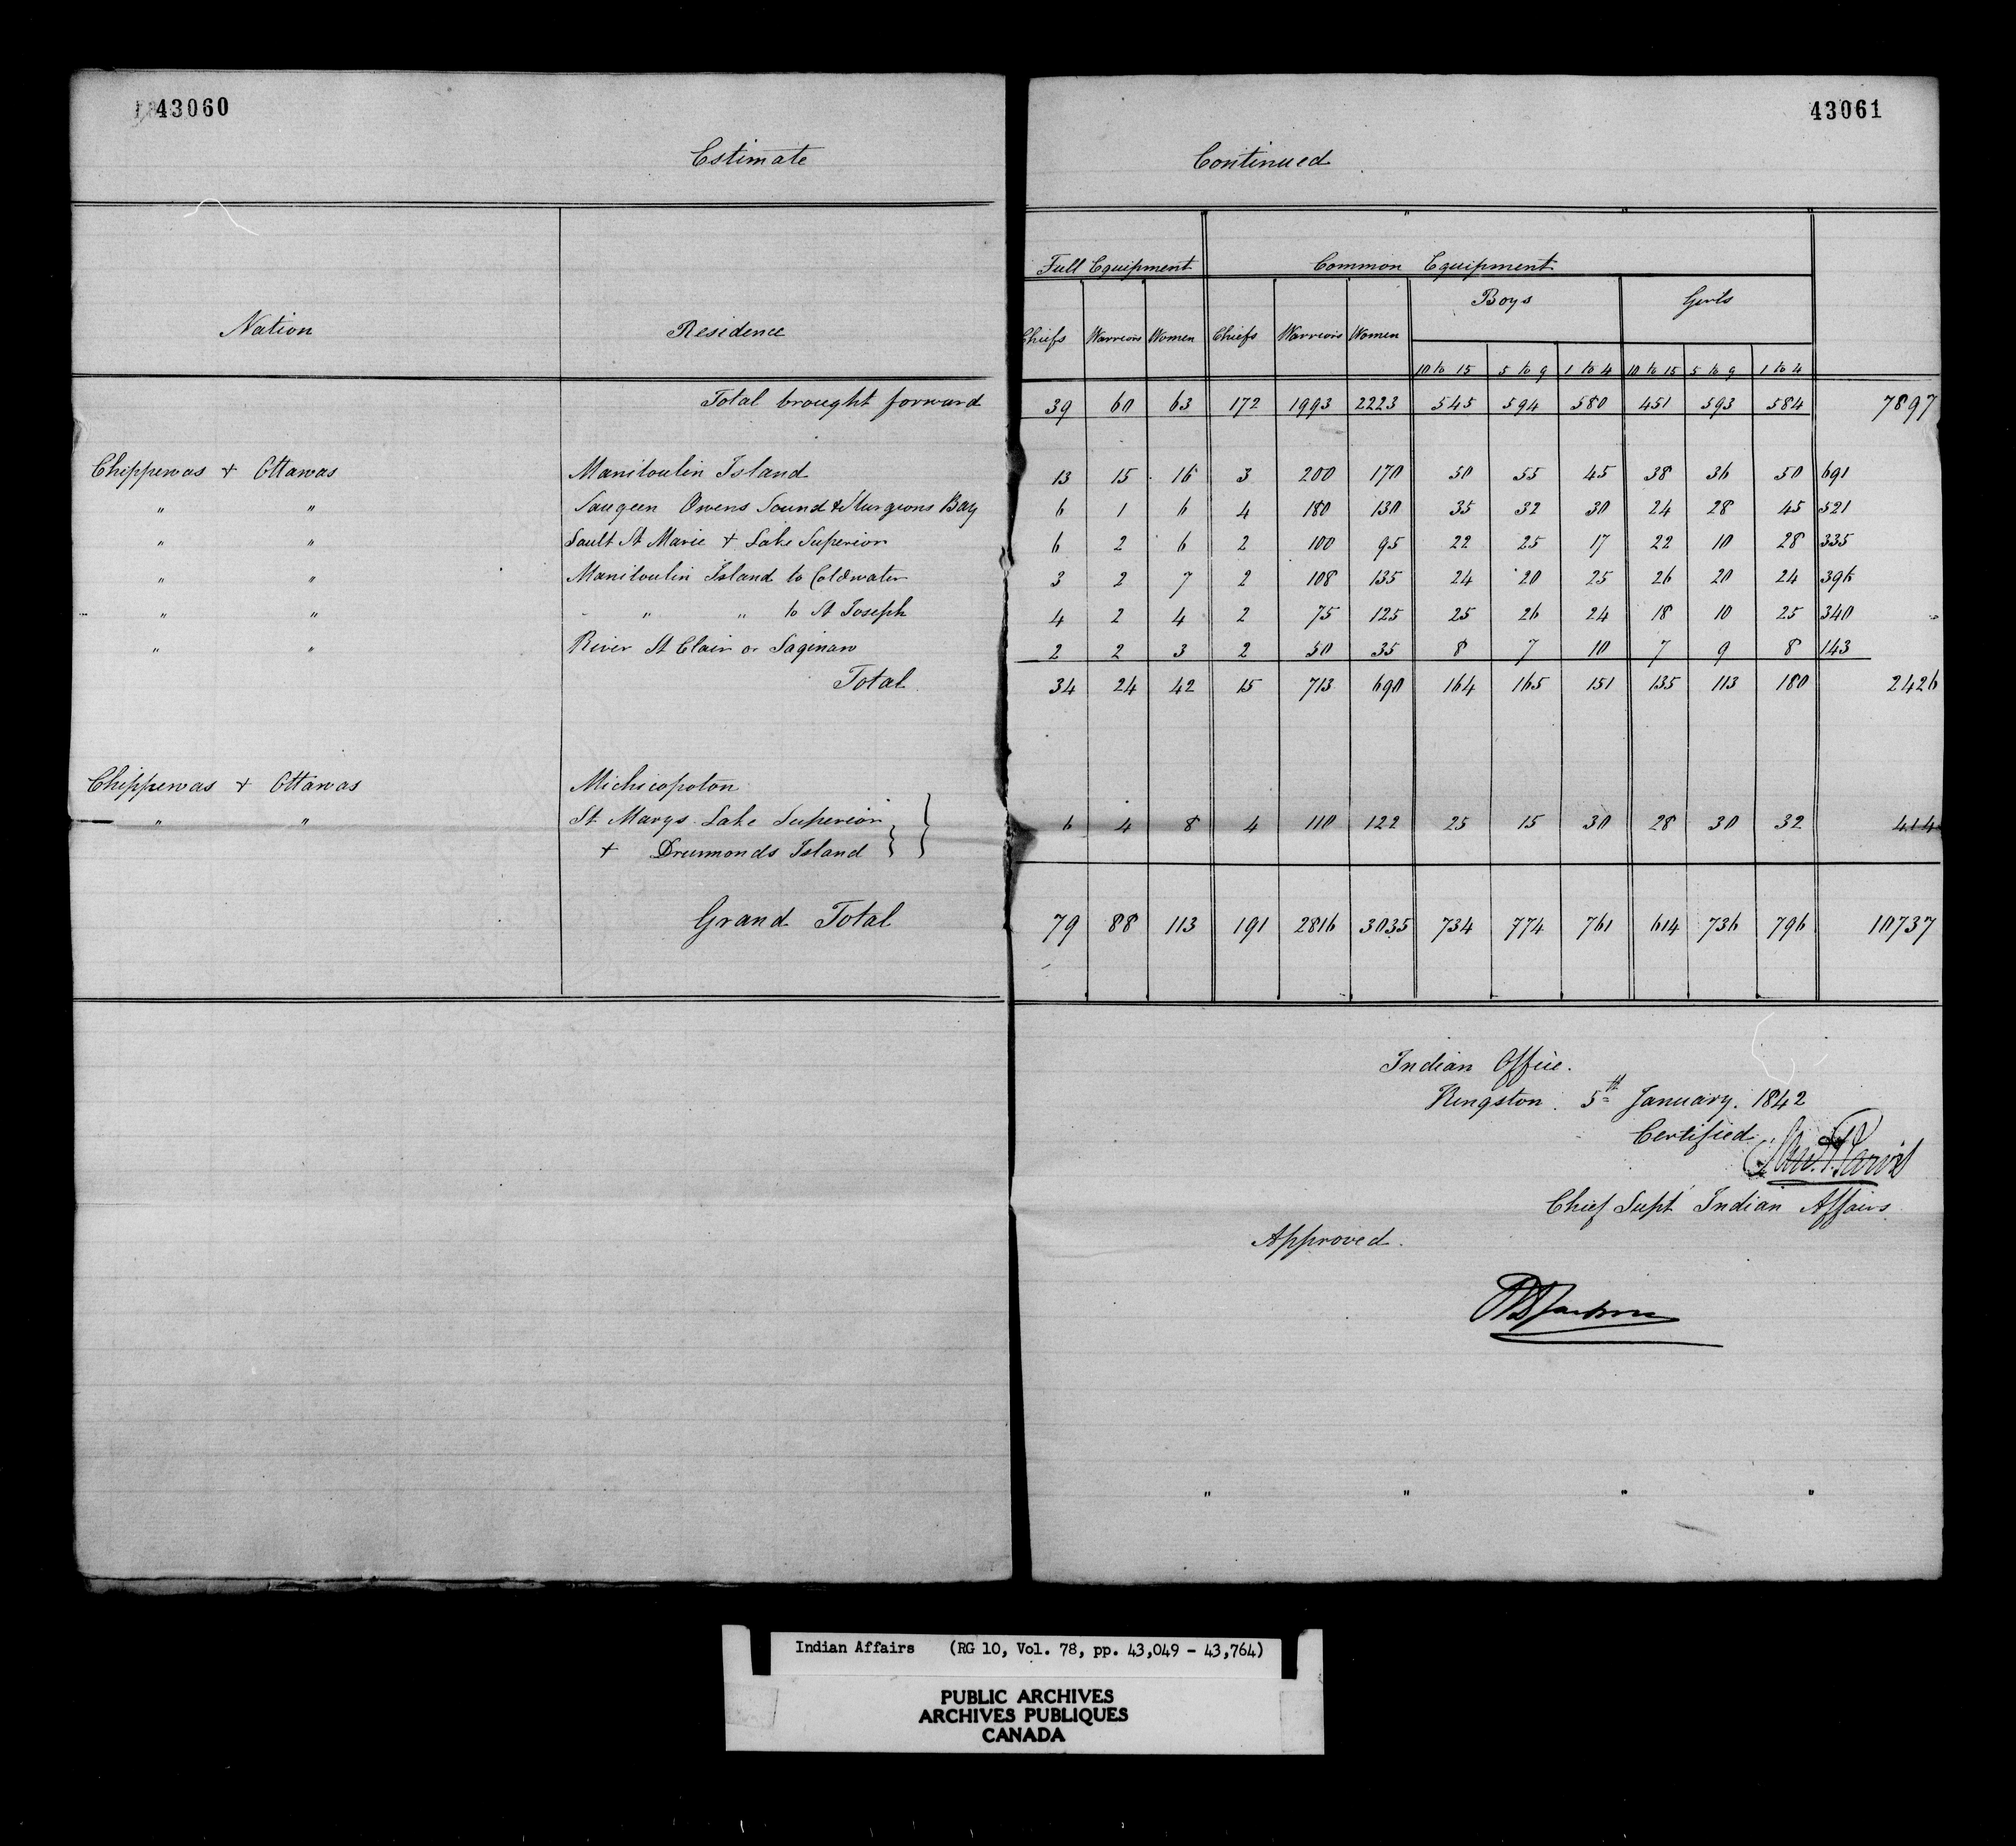 43060
43061
Estimate
Continued
Full Equipment Common Equipment
Boys Girls
Nation Residence Chiefs Warriors Women Chiefs Warriors Women
10 to 15 5 to 9 1 to 4 10 to 15 5 to 9 1 to 4
Total brought forward 39 60 63 172 1993 2223 545 594 580 451 593 584 7897
Chippewas + Ottawas Manitoulin Island 13 15 16 3 200 170 50 55 45 38 36 50 691
" " Saugeen Owens Sound & Sturgeons Bay 6 1 6 4 180 130 35 32 30 24 28 45 521
" " Sault St Marie + Lake Superior 6 2 6 2 100 95 22 25 17 22 10 28 335
" " Manitoulin Island to Coldwater 3 2 7 2 108 135 24 20 25 26 20 24 396
" " " " to St Joseph 4 2 4 2 75 125 25 26 24 18 10 25 340
" " River St Clair or Saginaw 2 2 3 2 50 35 8 7 10 7 9 8 143
Total 34 24 42 15 713 690 164 165 151 135 113 180 2426
Chippewas + Ottawas Michicopoton
" " St Marys Lake Superior 6 4 8 4 110 122 25 15 30 28 30 32 414
+ Drumonds Island
Grand Total 79 88 113 191 2816 3035 734 774 761 614 736 796 10737
Indian Office.
Kingston. 5th January. 1842
Certified
Saml P. Jarvis
Chief Supt Indian Affairs
Approved.
" " " "
Indian Affairs (RG 10, Vol. 78, pp. 43,049 - 43,764)
PUBLIC ARCHIVES
ARCHIVES PUBLIQUES
CANADA